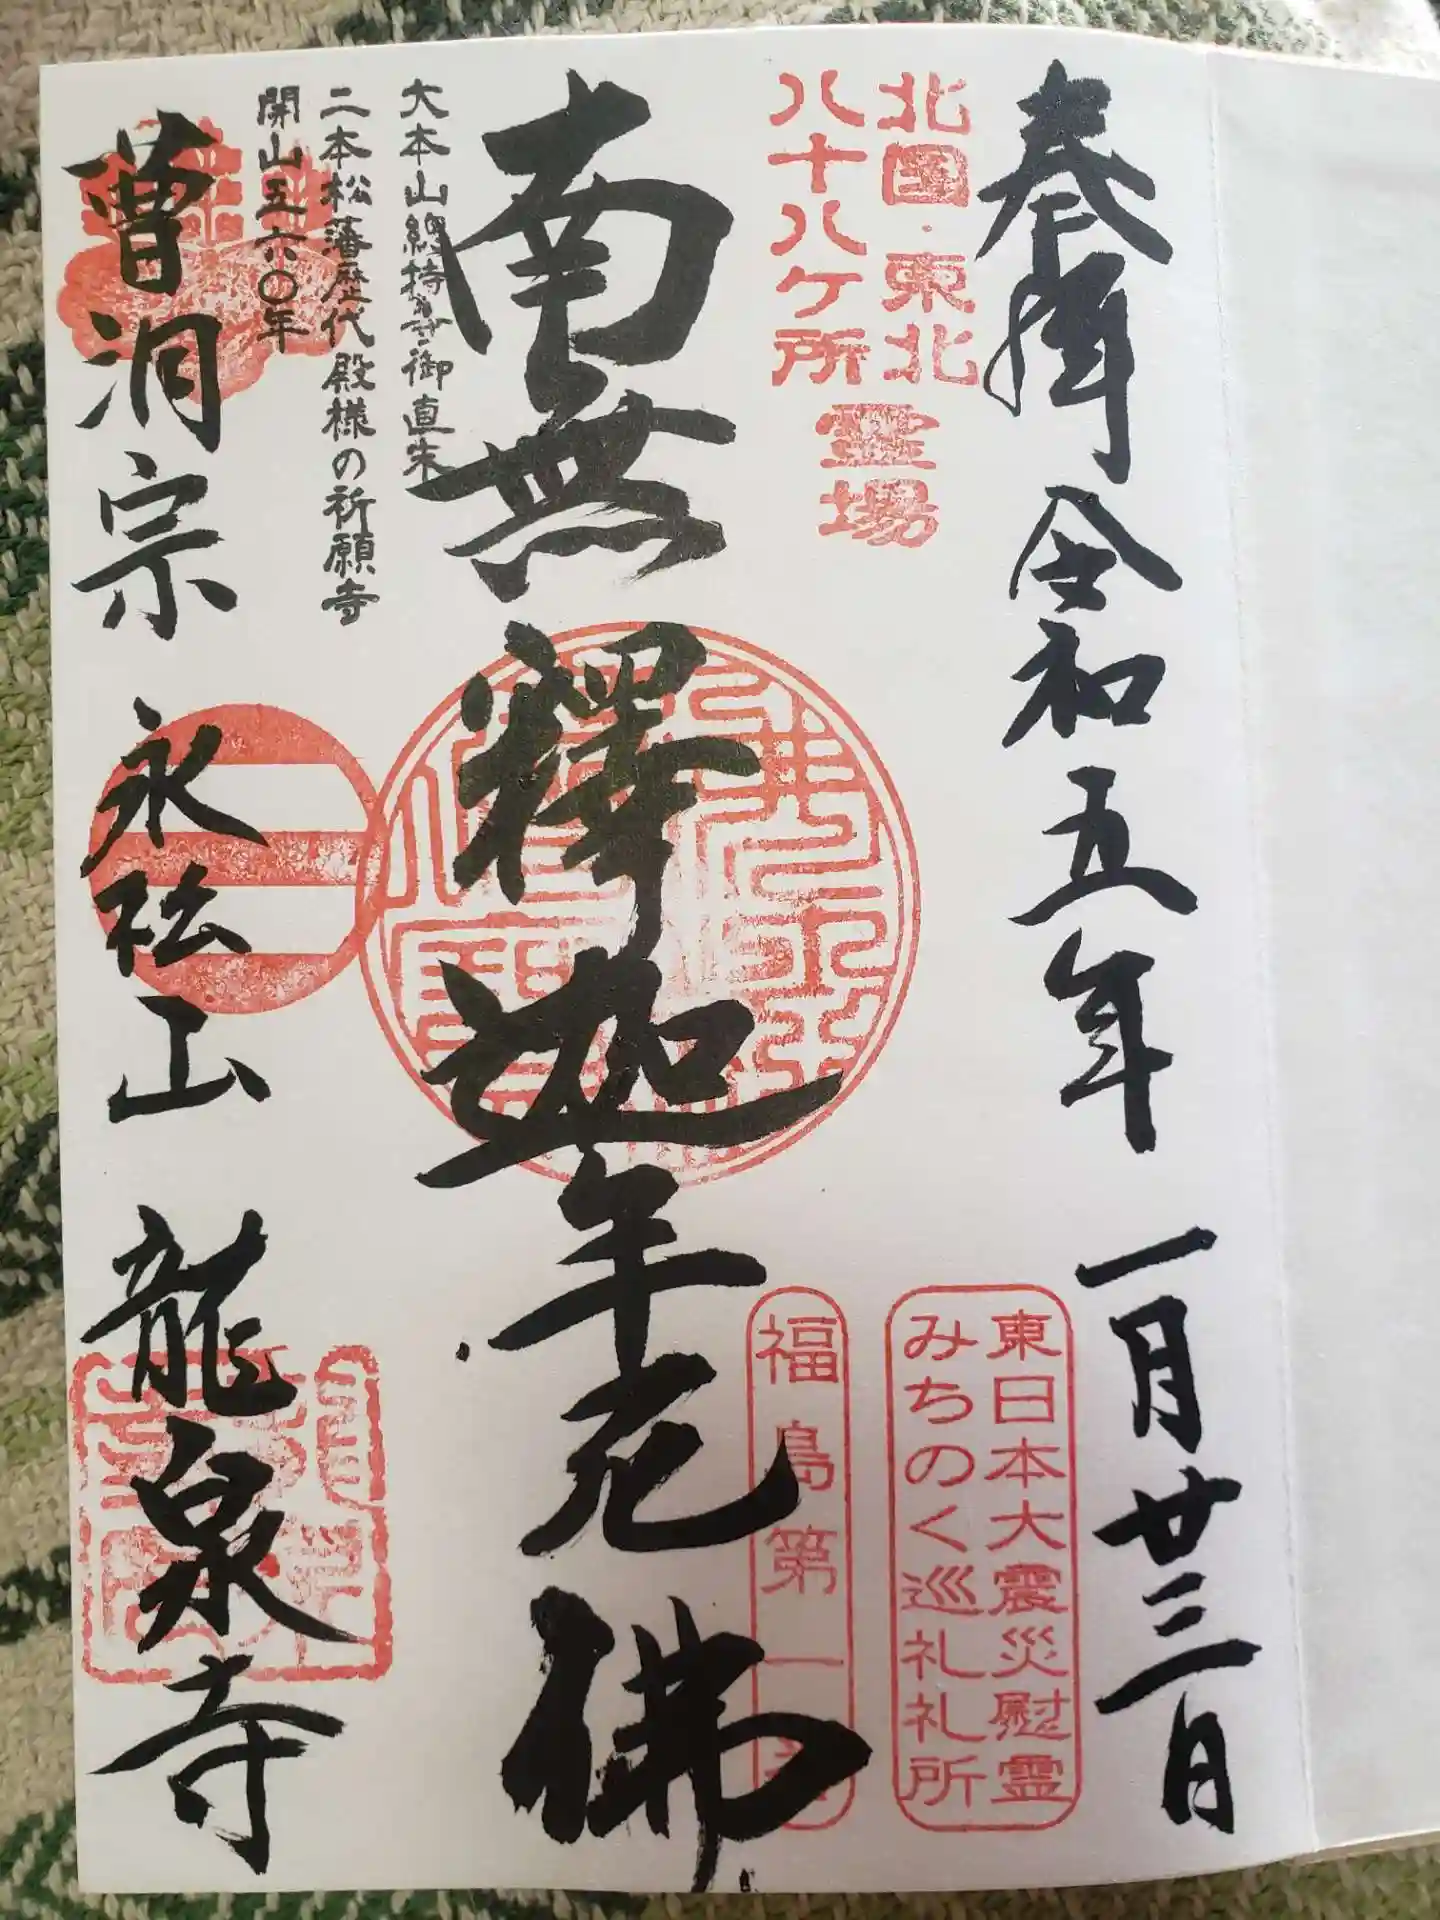 奉拝 令和五年 一月廿三日
北国・東北
八十八ケ所
霊場
東日本大震災慰霊
みちのく巡礼札所
福島第一
南無釋迦牟尼佛
大本山總持寺御直末
二本松藩歴代殿様の祈願寺
開山五六〇年
曹洞宗 永松山 龍泉寺